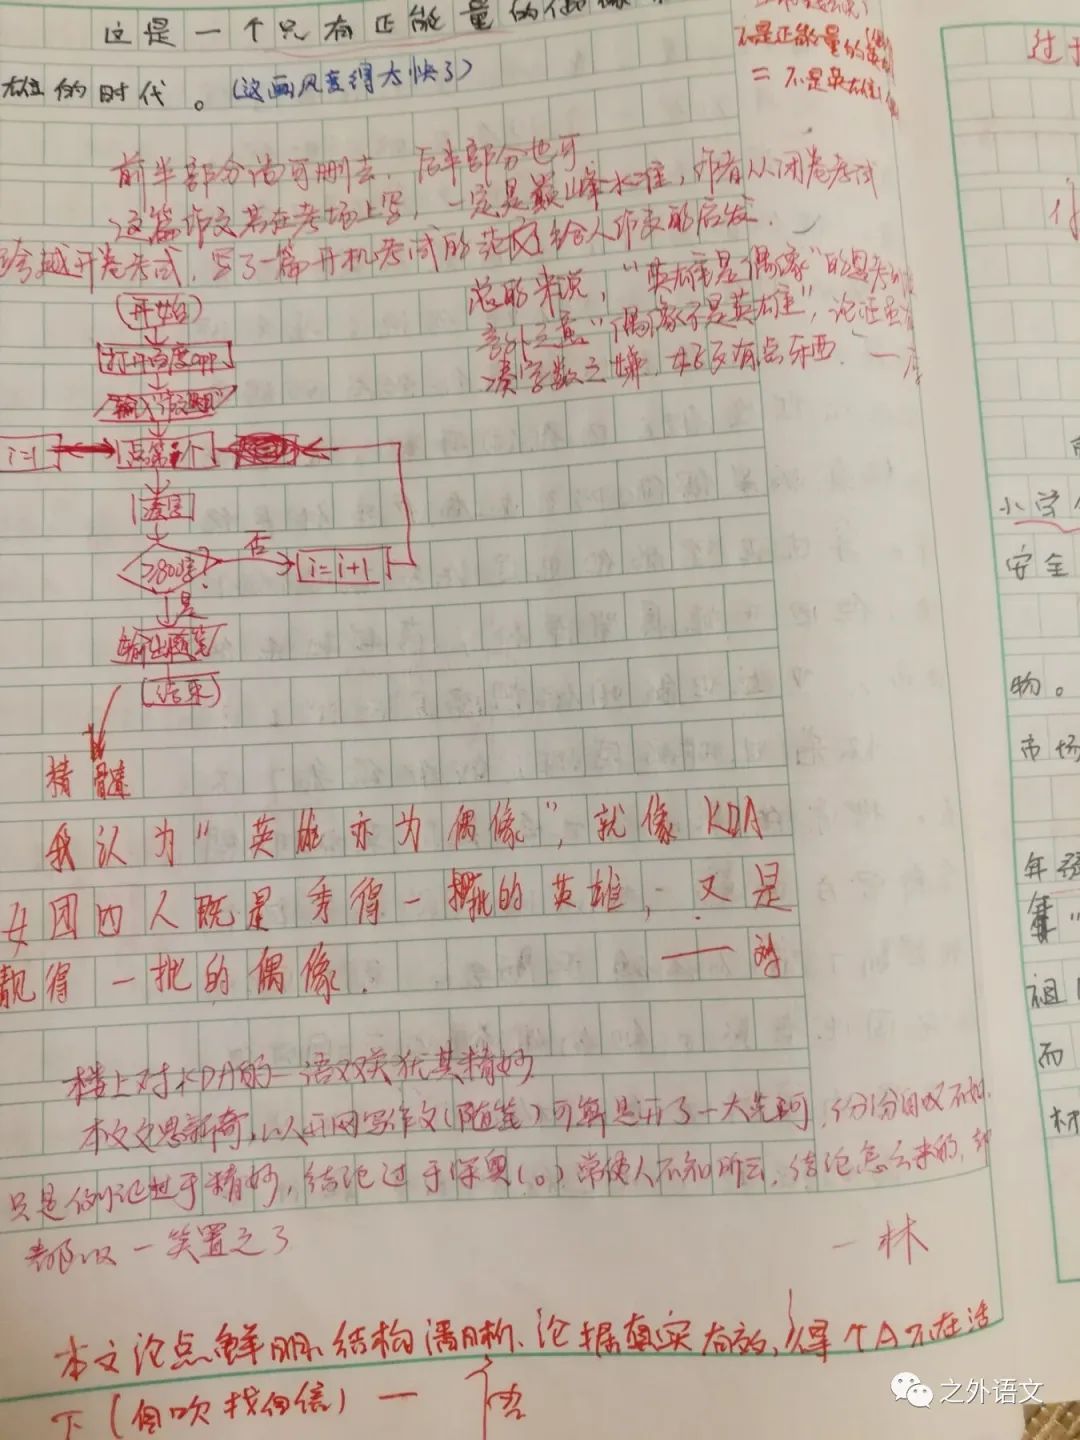 这是一个只有正能量的偶像
的时代。(这画风变得太快了)
不是正能量的
= 不是英雄
过于
前半部分尚可删去,后半部分也可
这篇作文若在考场上写,一定是巅峰水准,作者从闭卷考试
跨越开卷考试,写了一篇开机考试的范文给人带来的启发.
总的来说,"英雄是偶像"的思考
言外之意"偶像不是英雄",论证
凑字数之嫌,好歹有点东西.一
开始
打开百度app
输入"作文题"
i=1
点第i个
凑字
≥800字?
否
i=i+1
是
输出随笔
结束
精髓
我认为"英雄亦为偶像",就像KDA
女团四人既是秀得一批的英雄,又是
靓得一批的偶像.
——刘
楼上对KDA的一语双关尤其精妙.
本文文思新奇,以开网写作文(随笔)可算是开了一大先河,
只是例证过于精妙,结论过于深奥(。)常使人不知所云,结论怎么来的,却
都以一笑置之了
一林
本文论点鲜明、结构清晰、论据真实有效,得个A不在话
下(自吹找自信)一
小学
安全
物。
市场
年
祖
而
材
之外语文